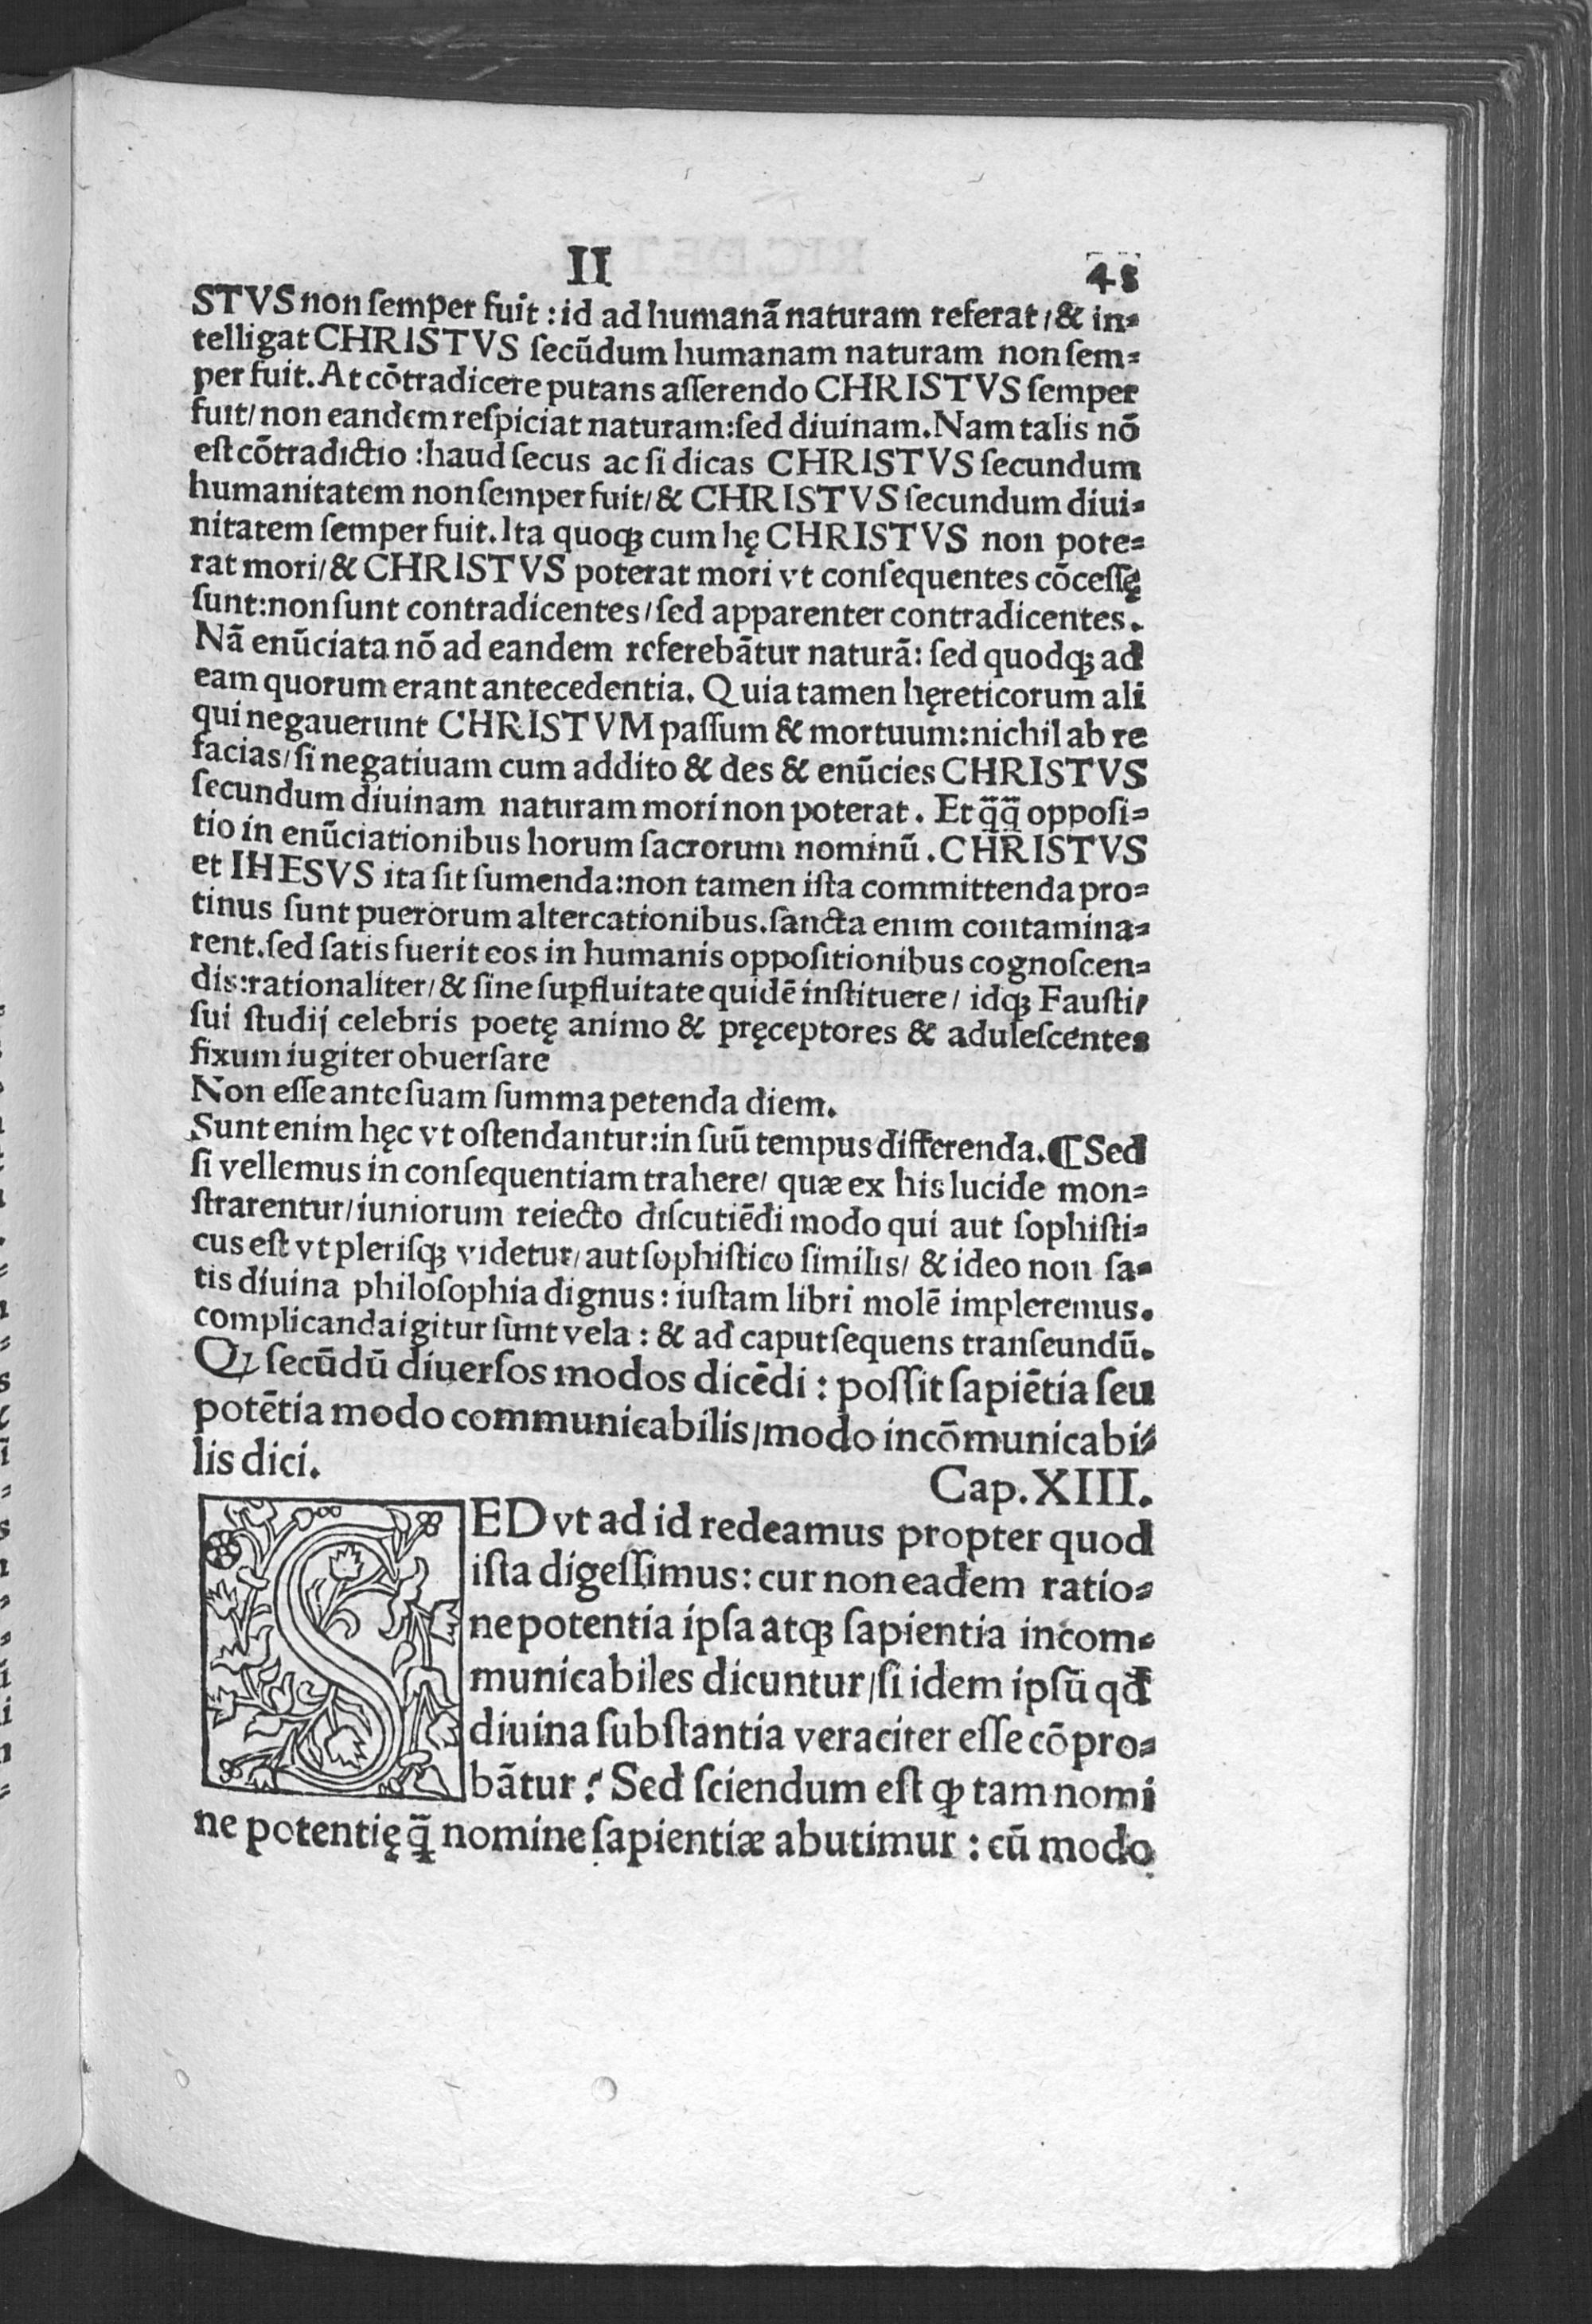 II 48
STVS non ſemper fuit : id ad humanã naturam referat / & in⸗
telligat CHRISTVS ſecũdum humanam naturam non ſem⸗
per fuit. At cõtradicere putans aſſerendo CHRISTVS ſemper
fuit / non eandem reſpiciat naturam: ſed diuinam. Nam talis nõ
eſt cõtradictio : haud ſecus ac ſi dicas CHRISTVS ſecundum
humanitatem non ſemper fuit / & CHRISTVS ſecundum diui⸗
nitatem ſemper fuit. Ita quoqꝫ cum hę CHRISTVS non pote⸗
rat mori / & CHRISTVS poterat mori vt conſequentes cõceſſę
ſunt: non ſunt contradicentes / ſed apparenter contradicentes.
Nã enũciata nõ ad eandem referebãtur naturã: ſed quodqꝫ ad
eam quorum erant antecedentia. Quia tamen hęreticorum ali
qui negauerunt CHRISTVM paſſum & mortuum: nichil ab re
facias / ſi negatiuam cum addito & des & enũcies CHRISTVS
ſecundum diuinam naturam mori non poterat. Et q̃q̃ oppoſi⸗
tio in enũciationibus horum ſacrorum nominũ. CHRISTVS
et IHESVS ita ſit ſumenda: non tamen iſta committenda pro⸗
tinus ſunt puerorum altercationibus. ſancta enim contamina⸗
rent. ſed ſatis fuerit eos in humanis oppoſitionibus cognoſcen⸗
dis: rationaliter / & ſine ſuꝑfluitate quidẽ inſtituere / idqꝫ Fauſti /
ſui ſtudij celebris poetę animo & pręceptores & aduleſcentes
fixum iugiter obuerſare
Non eſſe ante ſuam ſumma petenda diem.
Sunt enim hęc vt oſtendantur: in ſuũ tempus differenda. ¶ Sed
ſi vellemus in conſequentiam trahere / quæ ex his lucide mon⸗
ſtrarentur / iuniorum reiecto diſcutiẽdi modo qui aut ſophiſti⸗
cus eſt vt pleriſqꝫ videtur / aut ſophiſtico ſimilis / & ideo non ſa⸗
tis diuina philoſophia dignus: iuſtam libri molẽ impleremus.
complicanda igitur ſunt vela : & ad caput ſequens tranſeundũ.
Qꝫ ſecũdũ diuerſos modos dicẽdi : poſſit ſapiẽtia ſeu
potẽtia modo communicabilis / modo incõmunicabi⸗
lis dici.
Cap. XIII.
SED vt ad id redeamus propter quod
iſta digeſſimus: cur non eadem ratio⸗
ne potentia ipſa atqꝫ ſapientia incom⸗
municabiles dicuntur / ſi idem ipſũ qđ
diuina ſubſtantia veraciter eſſe cõpro⸗
bãtur? Sed ſciendum eſt ꝙ tam nomi
ne potentię q̃ nomine ſapientiæ abutimur : cũ modo